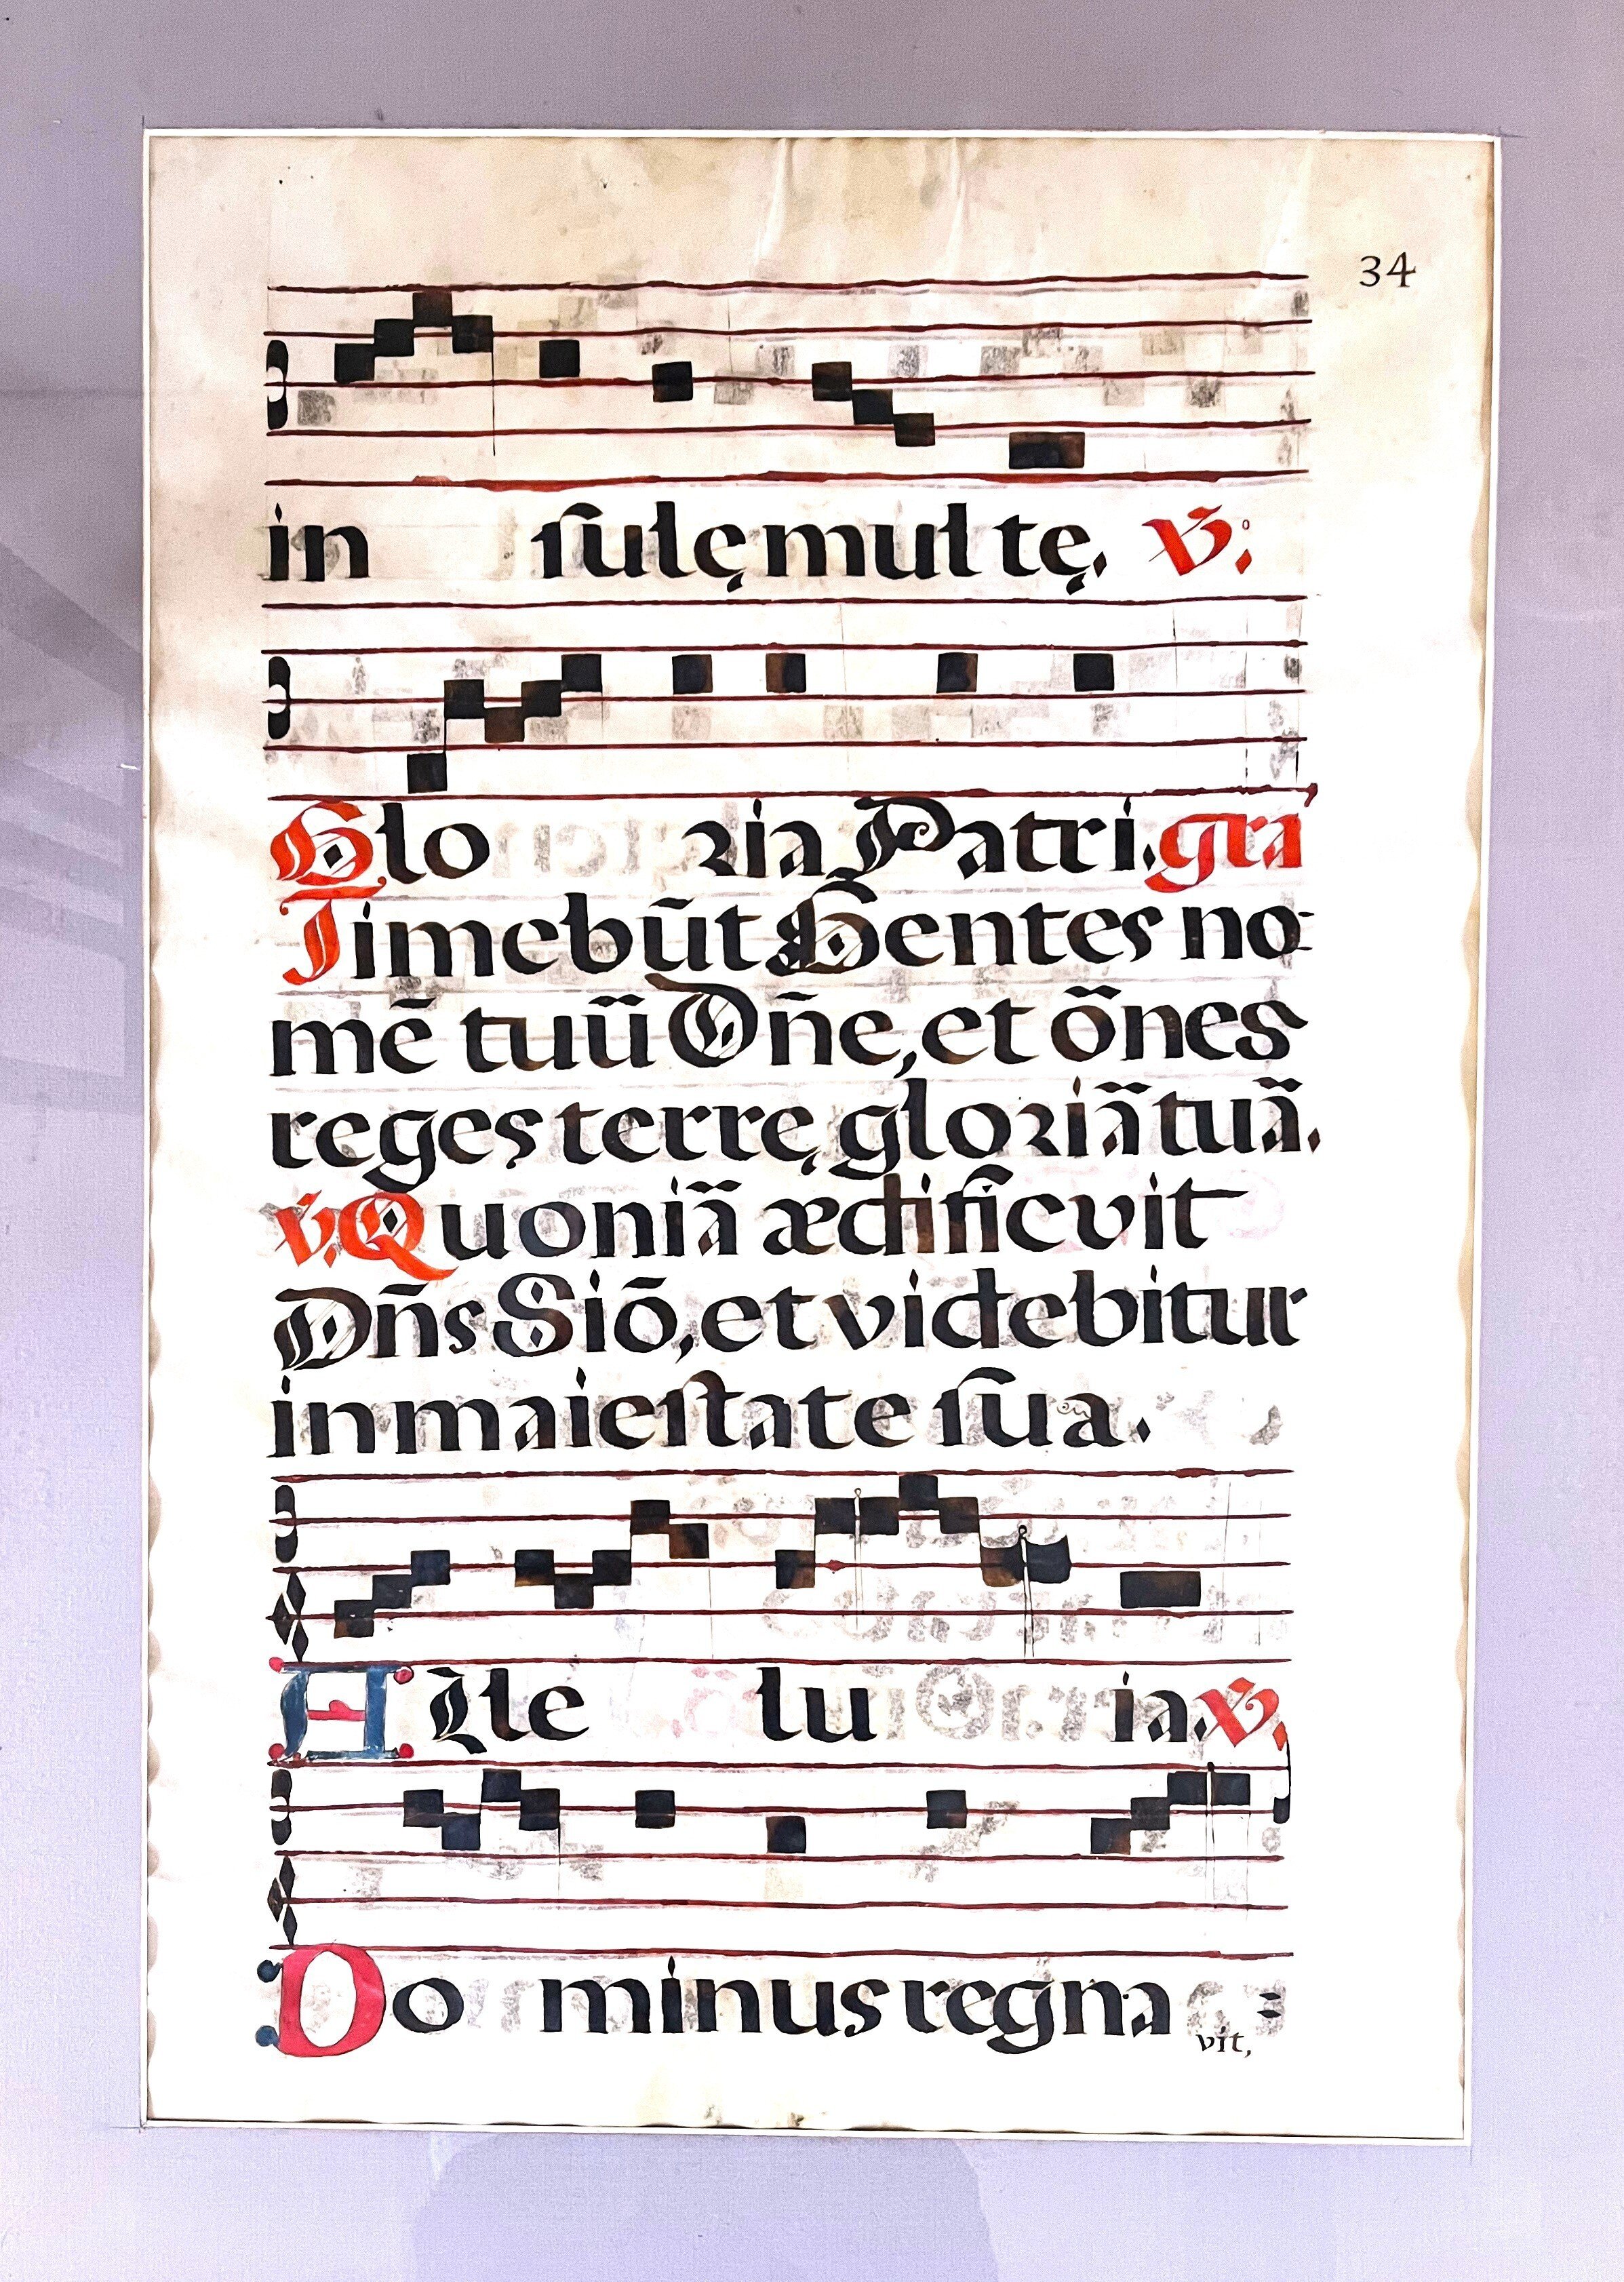 34
in ſulę multę. v̄.
Glo ria Patri. gra
Timebūt Gentes no-
mē tuū Dñe, et õnes
reges terrę gloriā tuā.
v̄. Quoniā ædificvit
Dñs Siō, et videbitur
in maieſtate ſua.
Alle lu ia. v̄.
Do minus regna =
vit,